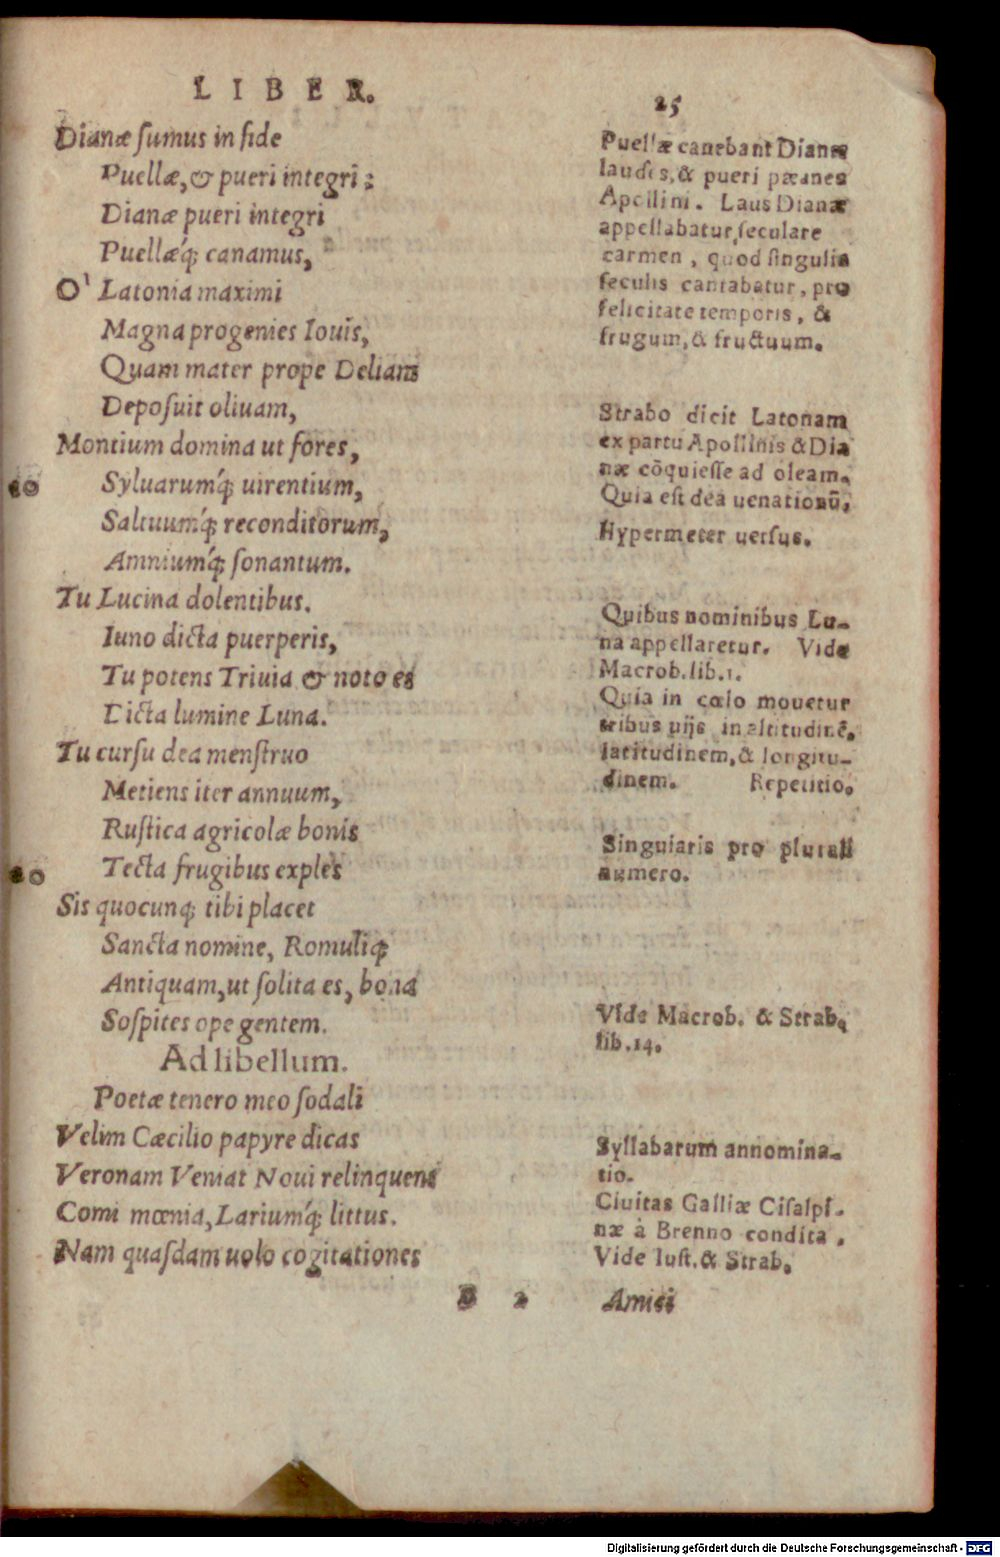 LIBER.
25
Dianæ ſumus in fide
Puellæ, & pueri integri:
Dianæ pueri integri
Puellæq́; canamus,
O' Latonia maximi
Magna progenies Iouis,
Quam mater prope Delians
Depoſuit oliuam,
Montium domina ut fores,
10
Syluarumq́; uirentium,
Saltuumq́; reconditorum,
Amniumq́; ſonantum.
Tu Lucina dolentibus.
Iuno dicta puerperis,
Tu potens Triuia & noto es
Dicta lumine Luna.
Tu curſu dea menſtruo
Metiens iter annuum,
Ruſtica agricolæ bonis
20
Tecta frugibus exples
Sis quocunq; tibi placet
Sancta nomine, Romuliq́;
Antiquam, ut ſolita es, bona
Soſpites ope gentem.
Ad libellum.
Poetæ tenero meo ſodali
Velim Cæcilio papyre dicas
Veronam Veniat Noui relinquens
Comi mœnia, Lariumq́; littus.
Nam quaſdam uolo cogitationes
B 2
Amici
Puellæ canebant Dianæ
laudes, & pueri pæanes
Apollini. Laus Dianæ
appellabatur ſeculare
carmen, quod ſingulis
ſeculis cantabatur, pro
felicitate temporis, &
frugum, & fructuum.
Strabo dicit Latonam
ex partu Apollinis & Dia
næ cōquieſſe ad oleam.
Quia eſt dea uenationū.
Hypermeter uerſus.
Quibus nominibus Lu-
na appellaretur. Vide
Macrob. lib. 1.
Quia in cœlo mouetur
tribus uijs in altitudinē,
latitudinem, & longitu-
dinem. Repetitio.
Singularis pro plurali
numero.
Vide Macrob. & Strab.
lib. 14.
Syllabarum annomina-
tio.
Ciuitas Galliæ Ciſalpi-
næ à Brenno condita.
Vide Iuſt. & Strab.
Digitalisierung gefördert durch die Deutsche Forschungsgemeinschaft - DFG